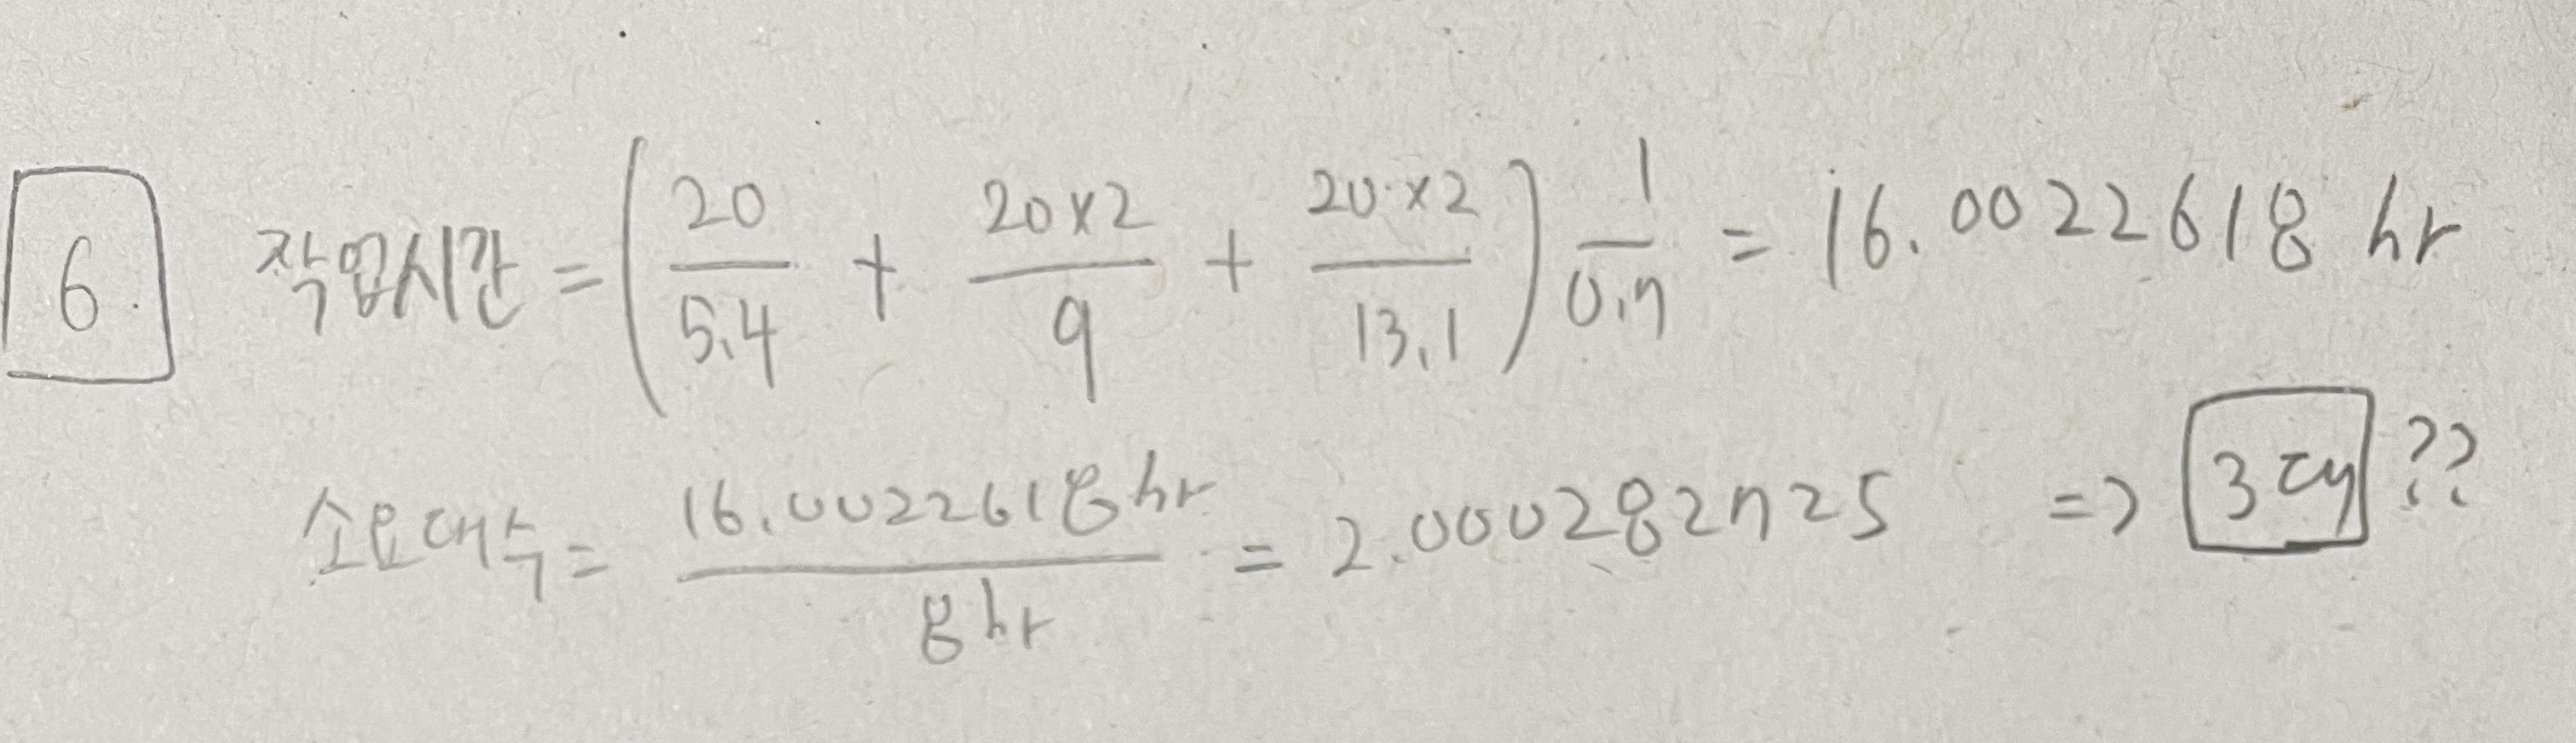 6. 작업시간 = (20/5.4 + 20×2/9 + 20×2/13.1) 1/0.7 = 16.0022618 hr
소요대수 = 16.0022618hr/8hr = 2.000282725 => 3대 ??